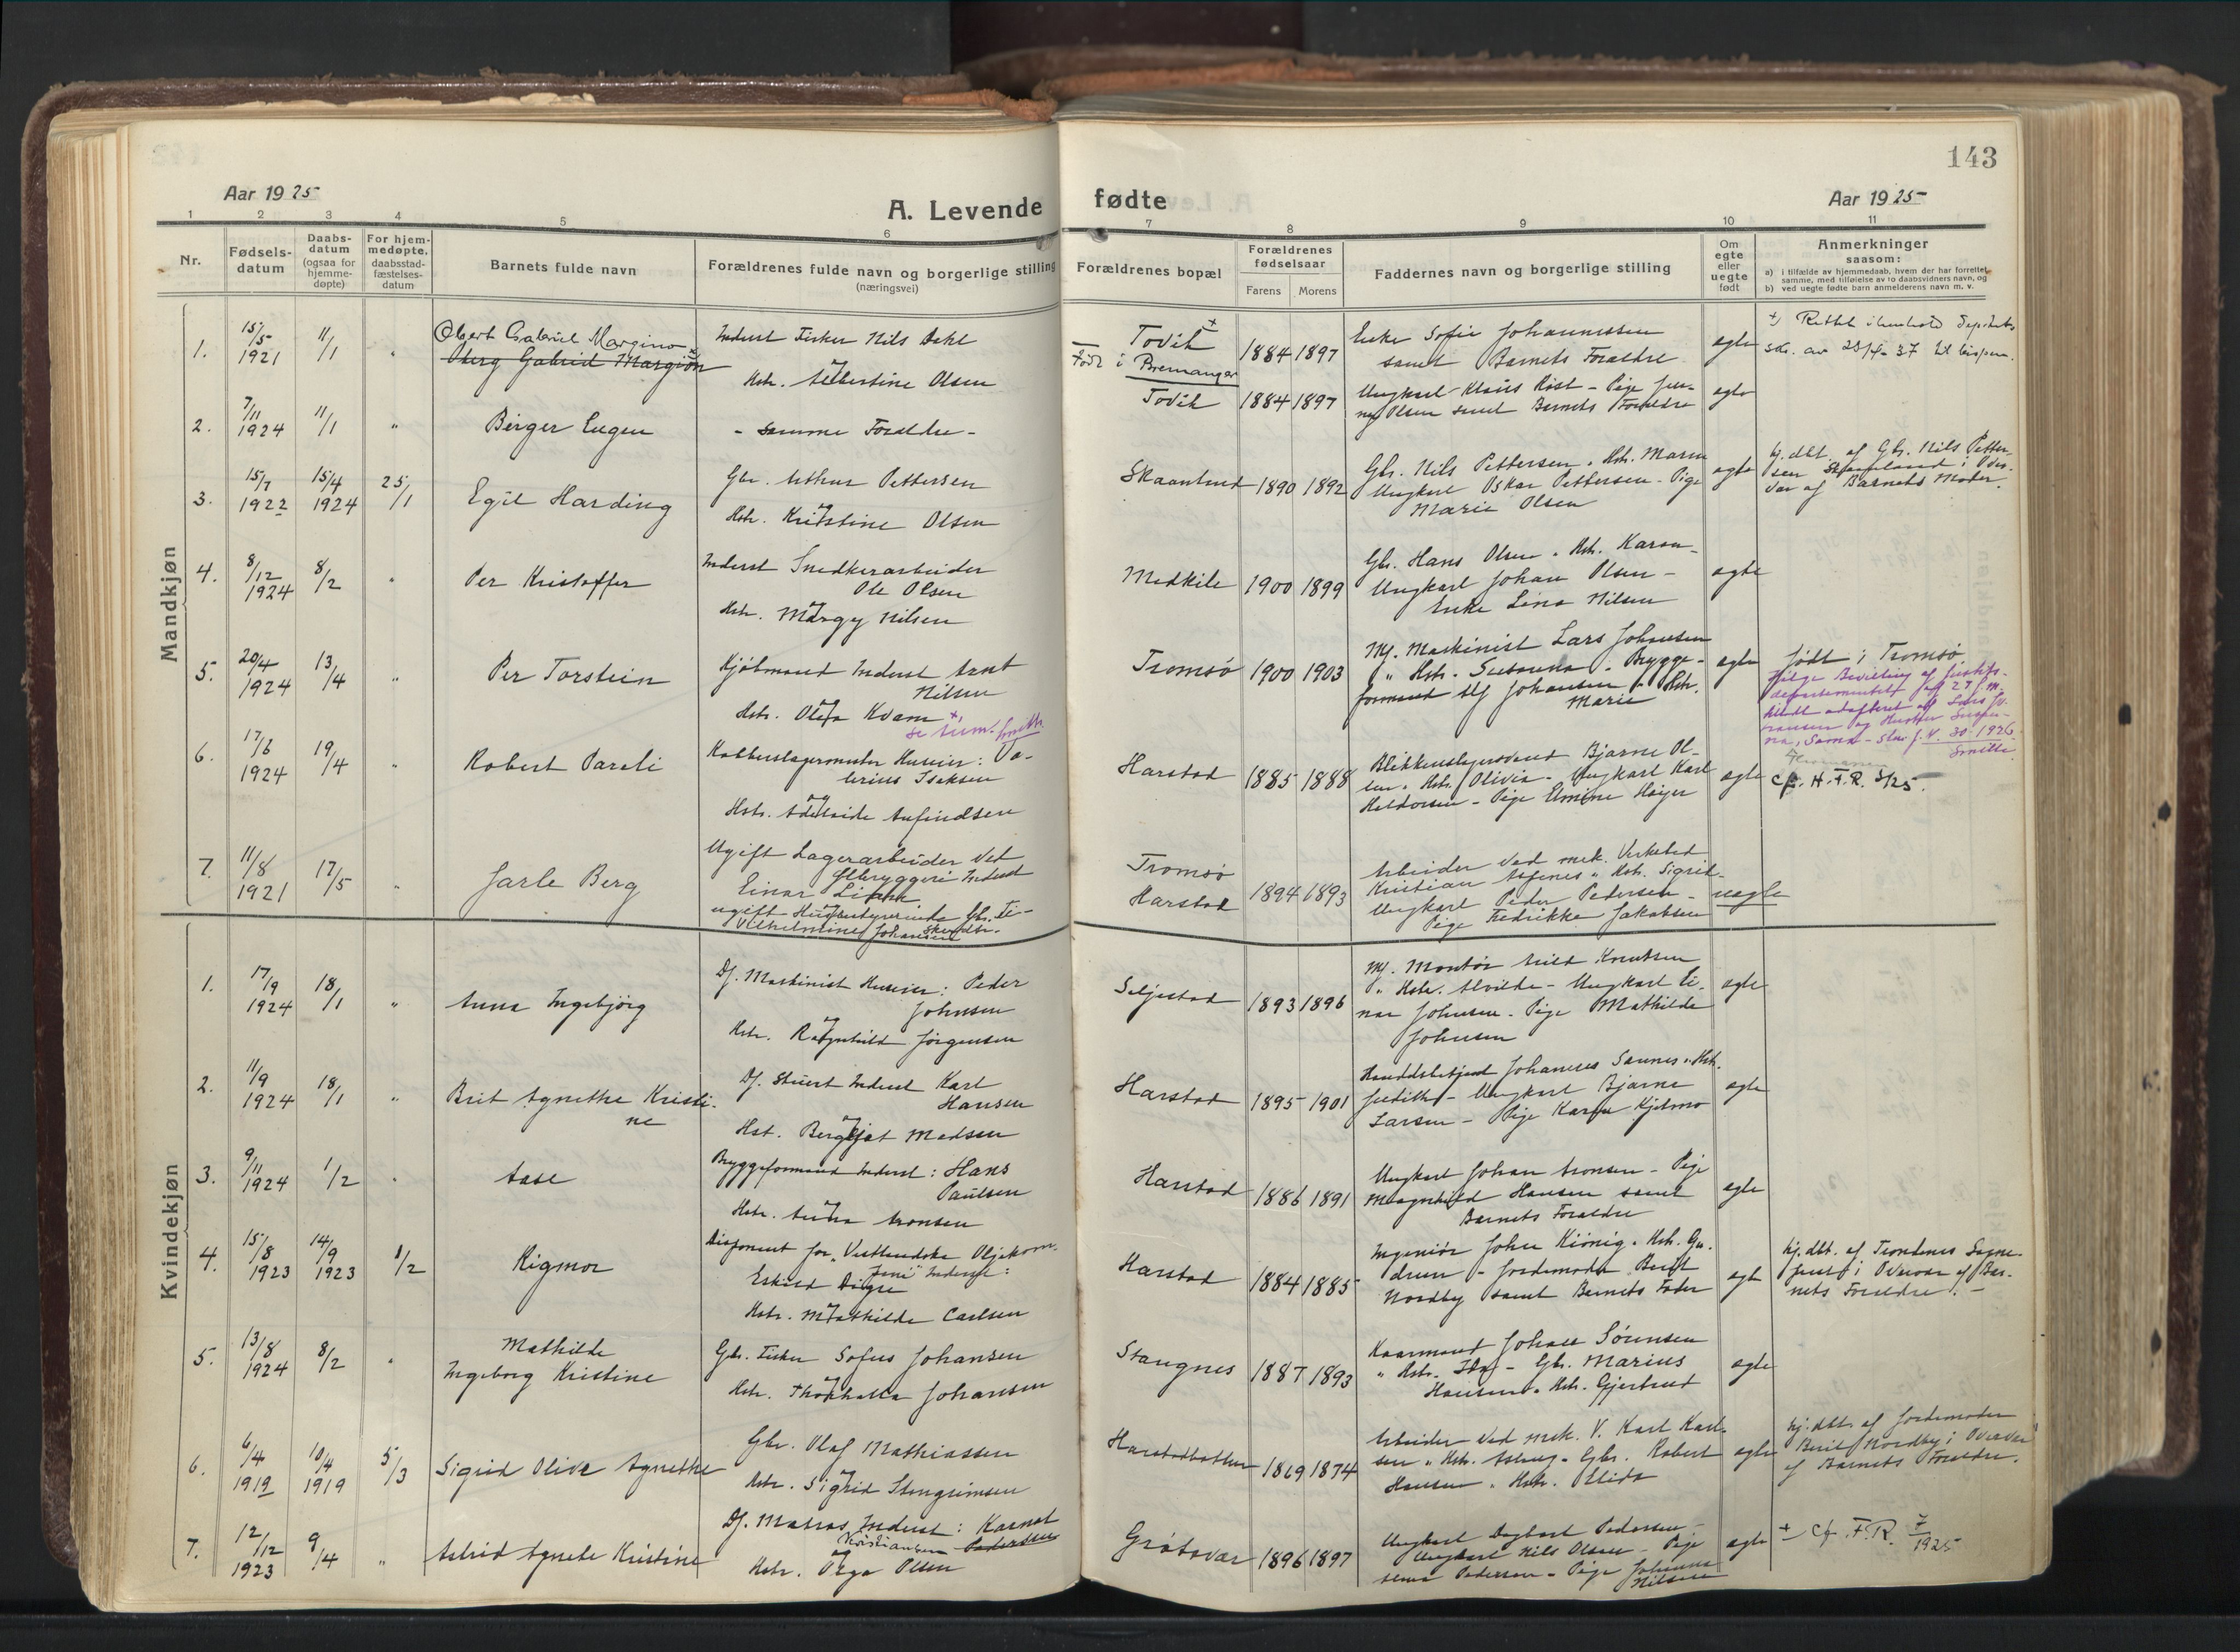 143
Aar 1925
A. Levende
fødte
Aar 1925
1 2 3 4 5 6 7 8 9 10 11
Nr.
Fødsels-
datum
Daabs-
datum
(ogsaa for
hjemme-
døpte)
For hjem-
medøpte.
daabsstad-
fæstelses-
datum
Barnets fulde navn
Forældrenes fulde navn og borgerlige stilling
(næringsvei)
Forældrenes bopæl
Forældrenes
fødselsaar
Farens Morens
Faddernes navn og borgerlige stilling
Om
egte
eller
uegte
født
Anmerkninger
saasom:
a) i tilfælde av hjemmedaab, hvem der har forrettet
samme, med tilføielse av to daabsvidners navn, og
b) ved uegte fødte barn anmelderens navn m. v.
Mandkjøn
1.
15/5
1921
11/1
"
Obert Gabriel Margino
Oberg Gabriel Margion
Inderst Fisker Nils Dahl
og
Hstr. Albertine Olsen
Tovik +
Født i Bremanger
1884 1897
Enke Sofie Johannessen
samt Barnets Forældre
egte
+) Rettet i henhold
skr. av 23/4-37 til bispen.
2.
7/11
1924
11/1
"
Birger Eugen
- samme Forældre -
Tovik
1884 1897
Ungkarl Klaus Røst - Pige Jen-
ny Olsen samt Barnets Forældre
egte
3.
15/7
1922
15/4
1924
25/1
Egil Harding
Gbr. Arthur Pettersen
og
Hstr. Kristine Olsen
Skaanland
1890 1892
Gbr. Nils Pettersen. Hstr. Maren
Ungkarl Oskar Pettersen - Pige
Marie Olsen
egte
hj. dbt. af Gbr. Nils Petter-
sen Skaanland i Over-
vær af Barnets Moder.
4.
8/12
1924
8/2
"
Per Kristoffer
Inderst Snedkerarbeider
Ole Olsen
og
Hstr. Margy Nilsen
Medkile
1900 1899
Gbr. Hans Olsen. Hstr. Karen -
Ungkarl Johan Olsen -
Enke Lina Nilsen
egte
5.
20/4
1924
13/4
"
Per Torstein
Kjøbmand Inderst Arnt
Nilsen
og
Hstr. Olefa Kvam +)
Tromsø
1900 1903
Mf. Maskinist Lars Johansen
" Hstr. Susanna - Brygge-
formand Alf Johansen " Hstr.
Marie
egte
født i Tromsø
ifølge Bevilling af Justits-
departementet
blevet adopteret af Lars Jo-
hansen og Hustru Susan-
na, Sama - 30. 1926
Smith
6.
17/6
1924
19/4
"
Robert Pareli
Kobberslagermester Huseier: Va-
lerius Isaksen
og
Hstr. Adelaide Anfindsen
Harstad
1885 1888
Blikkenslagersvend Bjarne Ol-
sen. Hstr. Olivia - Ungkarl Karl
Haldorsen - Pige Elmine Høyer
egte
cfr. H.F.R. 3/25.
7.
11/8
1921
17/5
"
Jarle Berg
Ugift Lagerarbeider ved
Ølbryggeri Inderst
Einar
og
ugift Husbestyrerinde Gbr. Fi-
skerdtr.
Vilhelmine Johansen
Tromsø
Harstad
1894 1893
Arbeider ved mek. Verksted
Kristian " Hstr. Sigrid -
Ungkarl Peder Pedersen -
Pige Fredrikke Jakobsen
uegte
Kvindekjøn
1.
17/9
1924
18/1
"
Anna Ingebjörg
Df. Maskinist Huseier: Peder
Johnsen
og
Hstr. Ragnhild Jörgensen
Seljestad
1893 1896
Mf. Montør Arild Knutsen
" Hstr. Alvilde - Ungkarl Ei-
nar Johnsen - Pige Mathilde
Johnsen
egte
2.
11/9
1924
18/1
"
Brit Agnethe Kristi-
ne
Df. Stuert Inderst Karl
Hansen
og
Hst. Bergljot Madsen
Harstad
1895 1901
Johannes Saunes " Hstr.
Judith - Ungkarl Bjarne
Larsen - Pige Karen
egte
3.
9/11
1924
1/2
"
Aase
Bryggeformand Inderst: Hans
Paulsen
og
Hstr. Anna Aronsen
Harstad
1886 1891
Ungkarl Johan Aronsen - Pige
Magnhild Hansen samt
Barnets Forældre
egte
4.
15/8
1923
14/9
1923
1/2
Rigmor
Disponent for "Vestlandske Oljekom-
pani" Inderst:
Eskild Digre
og
Hstr. Mathilde Carlsen
Harstad
1884 1885
Ingeniör John Kiönig. Hstr. Gu-
drun - Jordemoder Berit
Nordby samt Barnets Fader
egte
hj. dbt. af Trondenes Sogne-
prest i Overvær af Bar-
nets Forældre. -
5.
13/8
1924
8/2
"
Mathilde
Ingeborg Kristine
Gbr. Fisker Sofus Johansen
og
Hstr. Thorhalla Johansen
Stangnes
1887 1893
Kaarmand Johan Sörensen
" Hstr. Ida - Gbr. Marius
Hansen " Hstr. Gjertrud
egte
6.
6/4
1919
10/4
1919
5/3
Sigrid Olive Agnethe
Gbr. Olaf Mathiassen
og
Hstr. Sigrid Stengrimsen
Harstadbotten
1869 1874
Arbeider ved mek. V. Karl Karl-
sen " Hstr. Aslaug - Gbr. Robert
Hansen " Hstr. Elida
egte
hj. dbt. af Jordemoder
Berit Nordby i Overvær
af Barnets Forældre.
7.
12/12
1923
9/4
"
Astrid Agnete Kristine
Df. Matros Inderst: Karnot
Kristiansen Pedersen
og
Hstr. Olga Olsen
Grøtavær
1896 1897
Ungkarl Dagbart Pedersen -
Ungkarl Nils Olsen - Pige
Alma Pedersen - Pige Johanna
Nilsen
egte
+) cfr. F.R. 7/1925